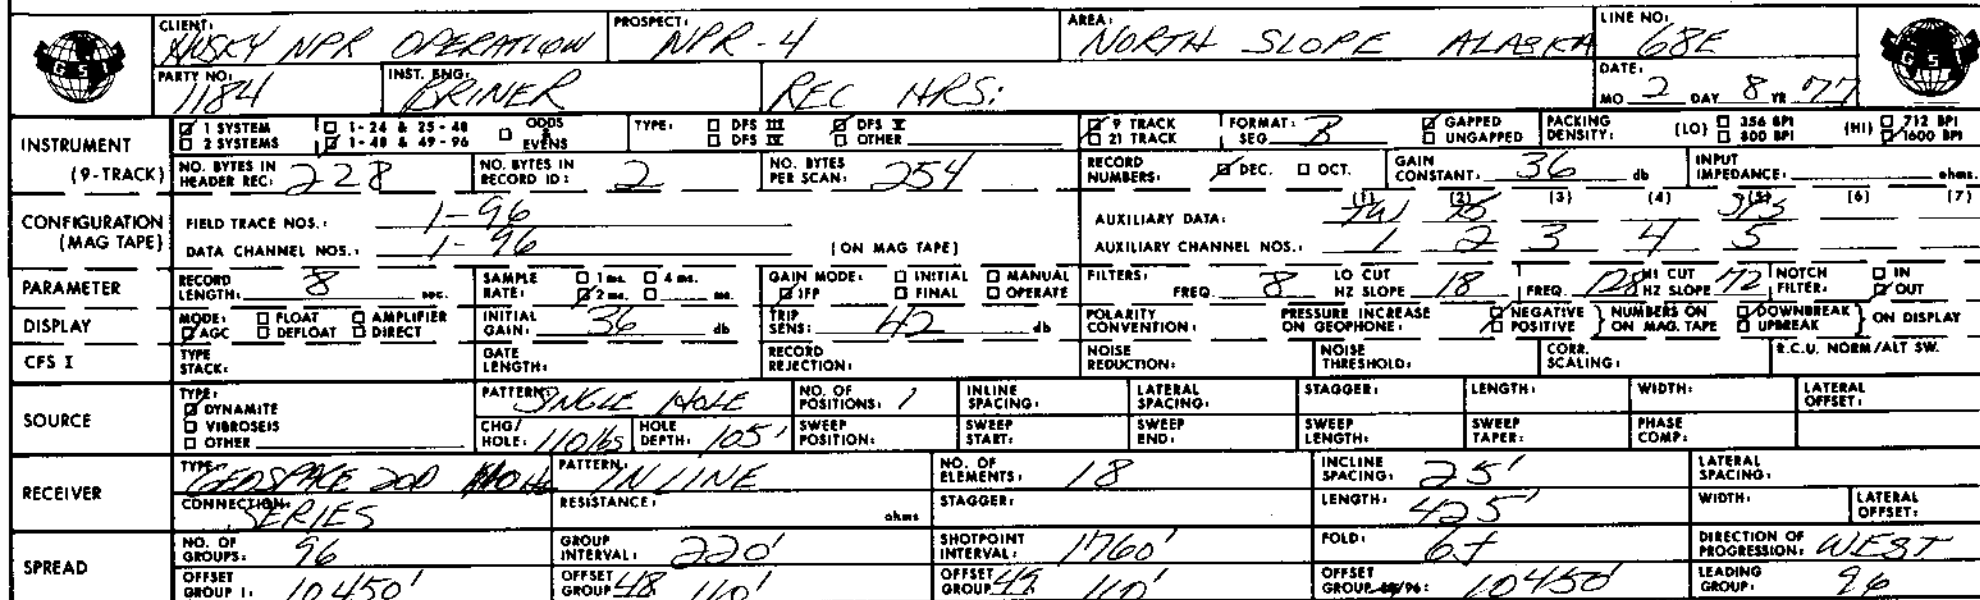 CLIENT: HUSKY NPR OPERATION PROSPECT: NPR-4 AREA: NORTH SLOPE ALASKA LINE NO: 68E
GSI GSI
PARTY NO: 1184 INST. ENG: BRINER REC HRS: DATE: MO 2 DAY 8 YR 77
INSTRUMENT (9-TRACK)
☑ 1 SYSTEM ☐ 1-24 & 25-48 ☐ ODDS & EVENS TYPE: ☐ DFS III ☑ DFS V ☑ 9 TRACK FORMAT: SEG B ☑ GAPPED PACKING DENSITY: (LO) ☐ 356 BPI (HI) ☐ 712 BPI
☐ 2 SYSTEMS ☑ 1-48 & 49-96 ☐ DFS IV ☐ OTHER ☐ 21 TRACK ☐ UNGAPPED ☐ 800 BPI ☑ 1600 BPI
NO. BYTES IN HEADER REC: 228 NO. BYTES IN RECORD ID: 2 NO. BYTES PER SCAN: 254 RECORD NUMBERS: ☑ DEC. ☐ OCT. GAIN CONSTANT: 36 db INPUT IMPEDANCE: ohms.
CONFIGURATION (MAG TAPE)
FIELD TRACE NOS.: 1-96 AUXILIARY DATA: (1) (2) (3) (4) (5) (6) (7)
DATA CHANNEL NOS.: 1-96 (ON MAG TAPE) AUXILIARY CHANNEL NOS.: 1 2 3 4 5
PARAMETER RECORD LENGTH: 8 sec. SAMPLE RATE: ☐ 1 ms. ☐ 4 ms. ☑ 2 ms. ☐ ms. GAIN MODE: ☐ INITIAL ☐ MANUAL ☑ IFP ☐ FINAL ☐ OPERATE FILTERS: FREQ. 8 LO CUT HZ SLOPE 18 FREQ. 128 HI CUT HZ SLOPE 72 NOTCH FILTER: ☐ IN ☑ OUT
DISPLAY MODE: ☐ FLOAT ☐ AMPLIFIER ☑ AGC ☐ DEFLOAT ☐ DIRECT INITIAL GAIN: 36 db TRIP SENS: 42 db POLARITY CONVENTION: PRESSURE INCREASE ON GEOPHONE: ☐ NEGATIVE ☑ POSITIVE } NUMBERS ON ON MAG. TAPE ☑ DOWNBREAK ☐ UPBREAK } ON DISPLAY
CFS I TYPE STACK: GATE LENGTH: RECORD REJECTION: NOISE REDUCTION: NOISE THRESHOLD: CORR. SCALING: R.C.U. NORM/ALT SW.
SOURCE
TYPE: ☑ DYNAMITE ☐ VIBROSEIS ☐ OTHER PATTERN: SINGLE HOLE NO. OF POSITIONS: 1 INLINE SPACING: LATERAL SPACING: STAGGER: LENGTH: WIDTH: LATERAL OFFSET:
CHG/HOLE: 110 lbs HOLE DEPTH: 105' SWEEP POSITION: SWEEP START: SWEEP END: SWEEP LENGTH: SWEEP TAPER: PHASE COMP:
RECEIVER
TYPE: GEOSPACE 20D PATTERN: INLINE NO. OF ELEMENTS: 18 INCLINE SPACING: 25' LATERAL SPACING:
CONNECTION: SERIES RESISTANCE: ohms STAGGER: LENGTH: 425' WIDTH: LATERAL OFFSET:
SPREAD
NO. OF GROUPS: 96 GROUP INTERVAL: 220' SHOTPOINT INTERVAL: 1760' FOLD: DIRECTION OF PROGRESSION: WEST
OFFSET GROUP 1: 10450' OFFSET GROUP 48 110' OFFSET GROUP 49 110' OFFSET GROUP /96: 10450' LEADING GROUP: 96